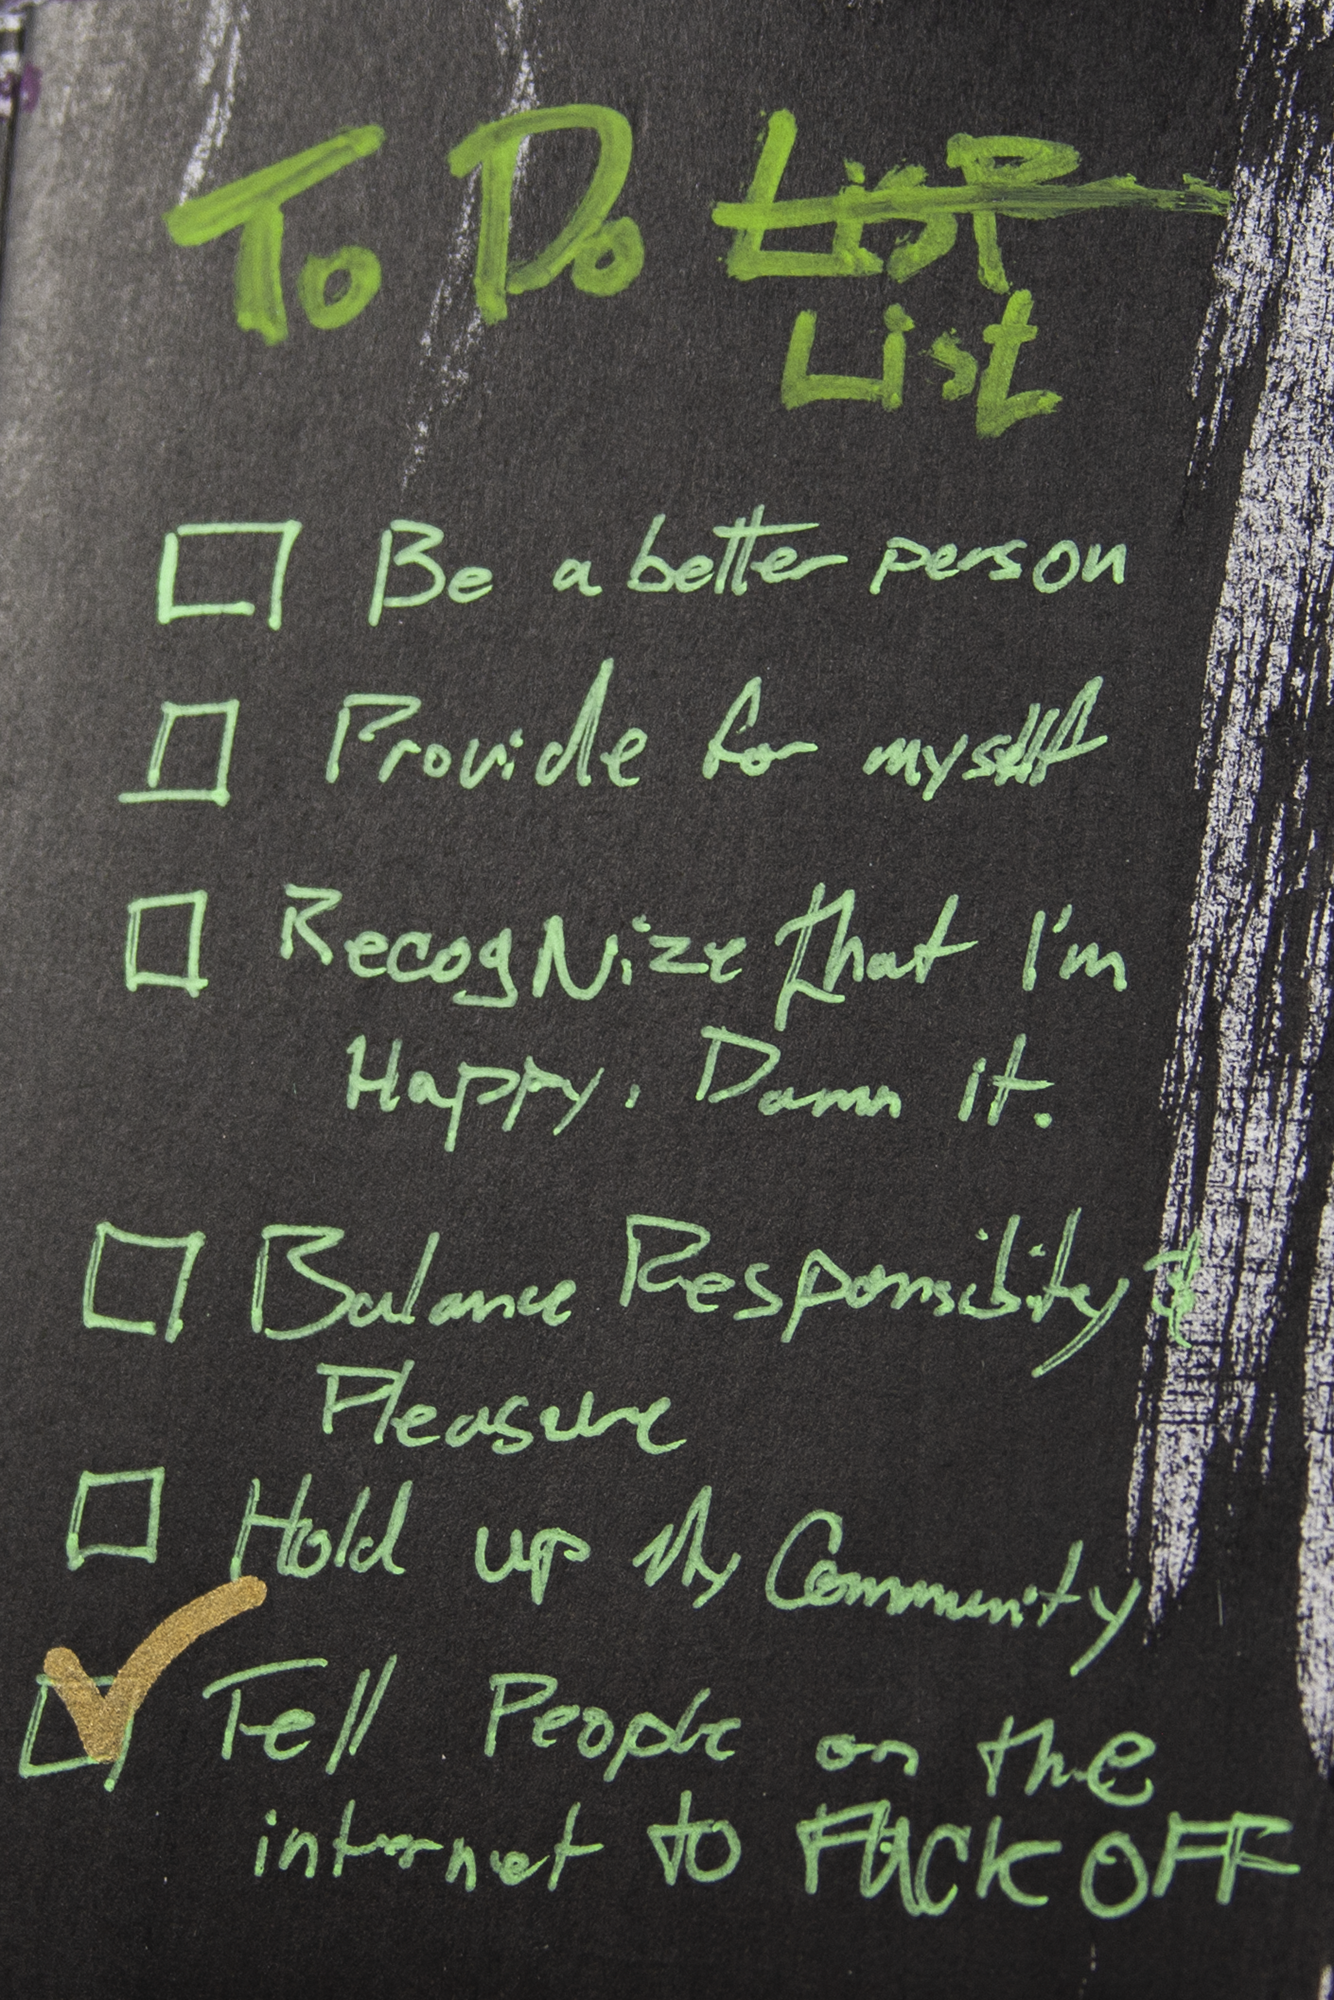 To Do LisP
List
Be a better person
Provide for myself
RecogNize that I'm
Happy, Damn it.
Balance Responsibility &
Pleasure
Hold up My Community
Tell People on the
internet to FUCK OFF